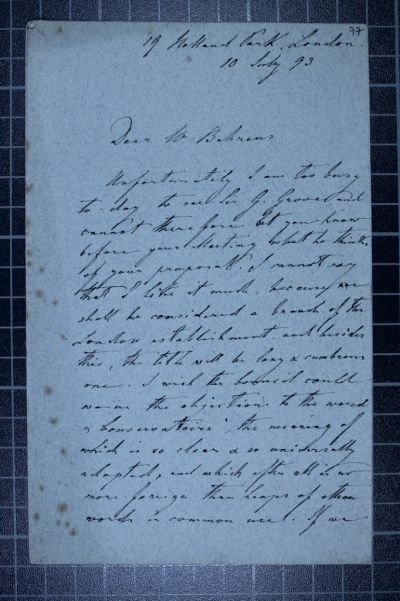 77
19 Holland Park. London
10 July 93
Dear Mr Behrens
Unfortunately I am too busy
to day to see Sir G. Grove and
cannot therefore let you know
before your Meeting what he thinks
of your proposal. I cannot say
that I like it much because we
shall be considered a branch of the
London establishment and besides
this, the title will be long & cumbrous
one. I wish the Council could
waive the objection to the word
"Conservatoire", the meaning of
which is so clear & so universally
adopted, and which after all is no
more foreign than heaps of other
words in common use. If we